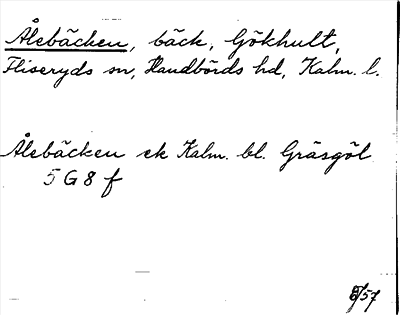 Ålebäcken, bäck, Gökhult,
Fliseryds sn, Handbörds hd, Kalm. l.
Ålebäcken ek Kalm. bl. Gräsgöl
5 G 8 f
/57